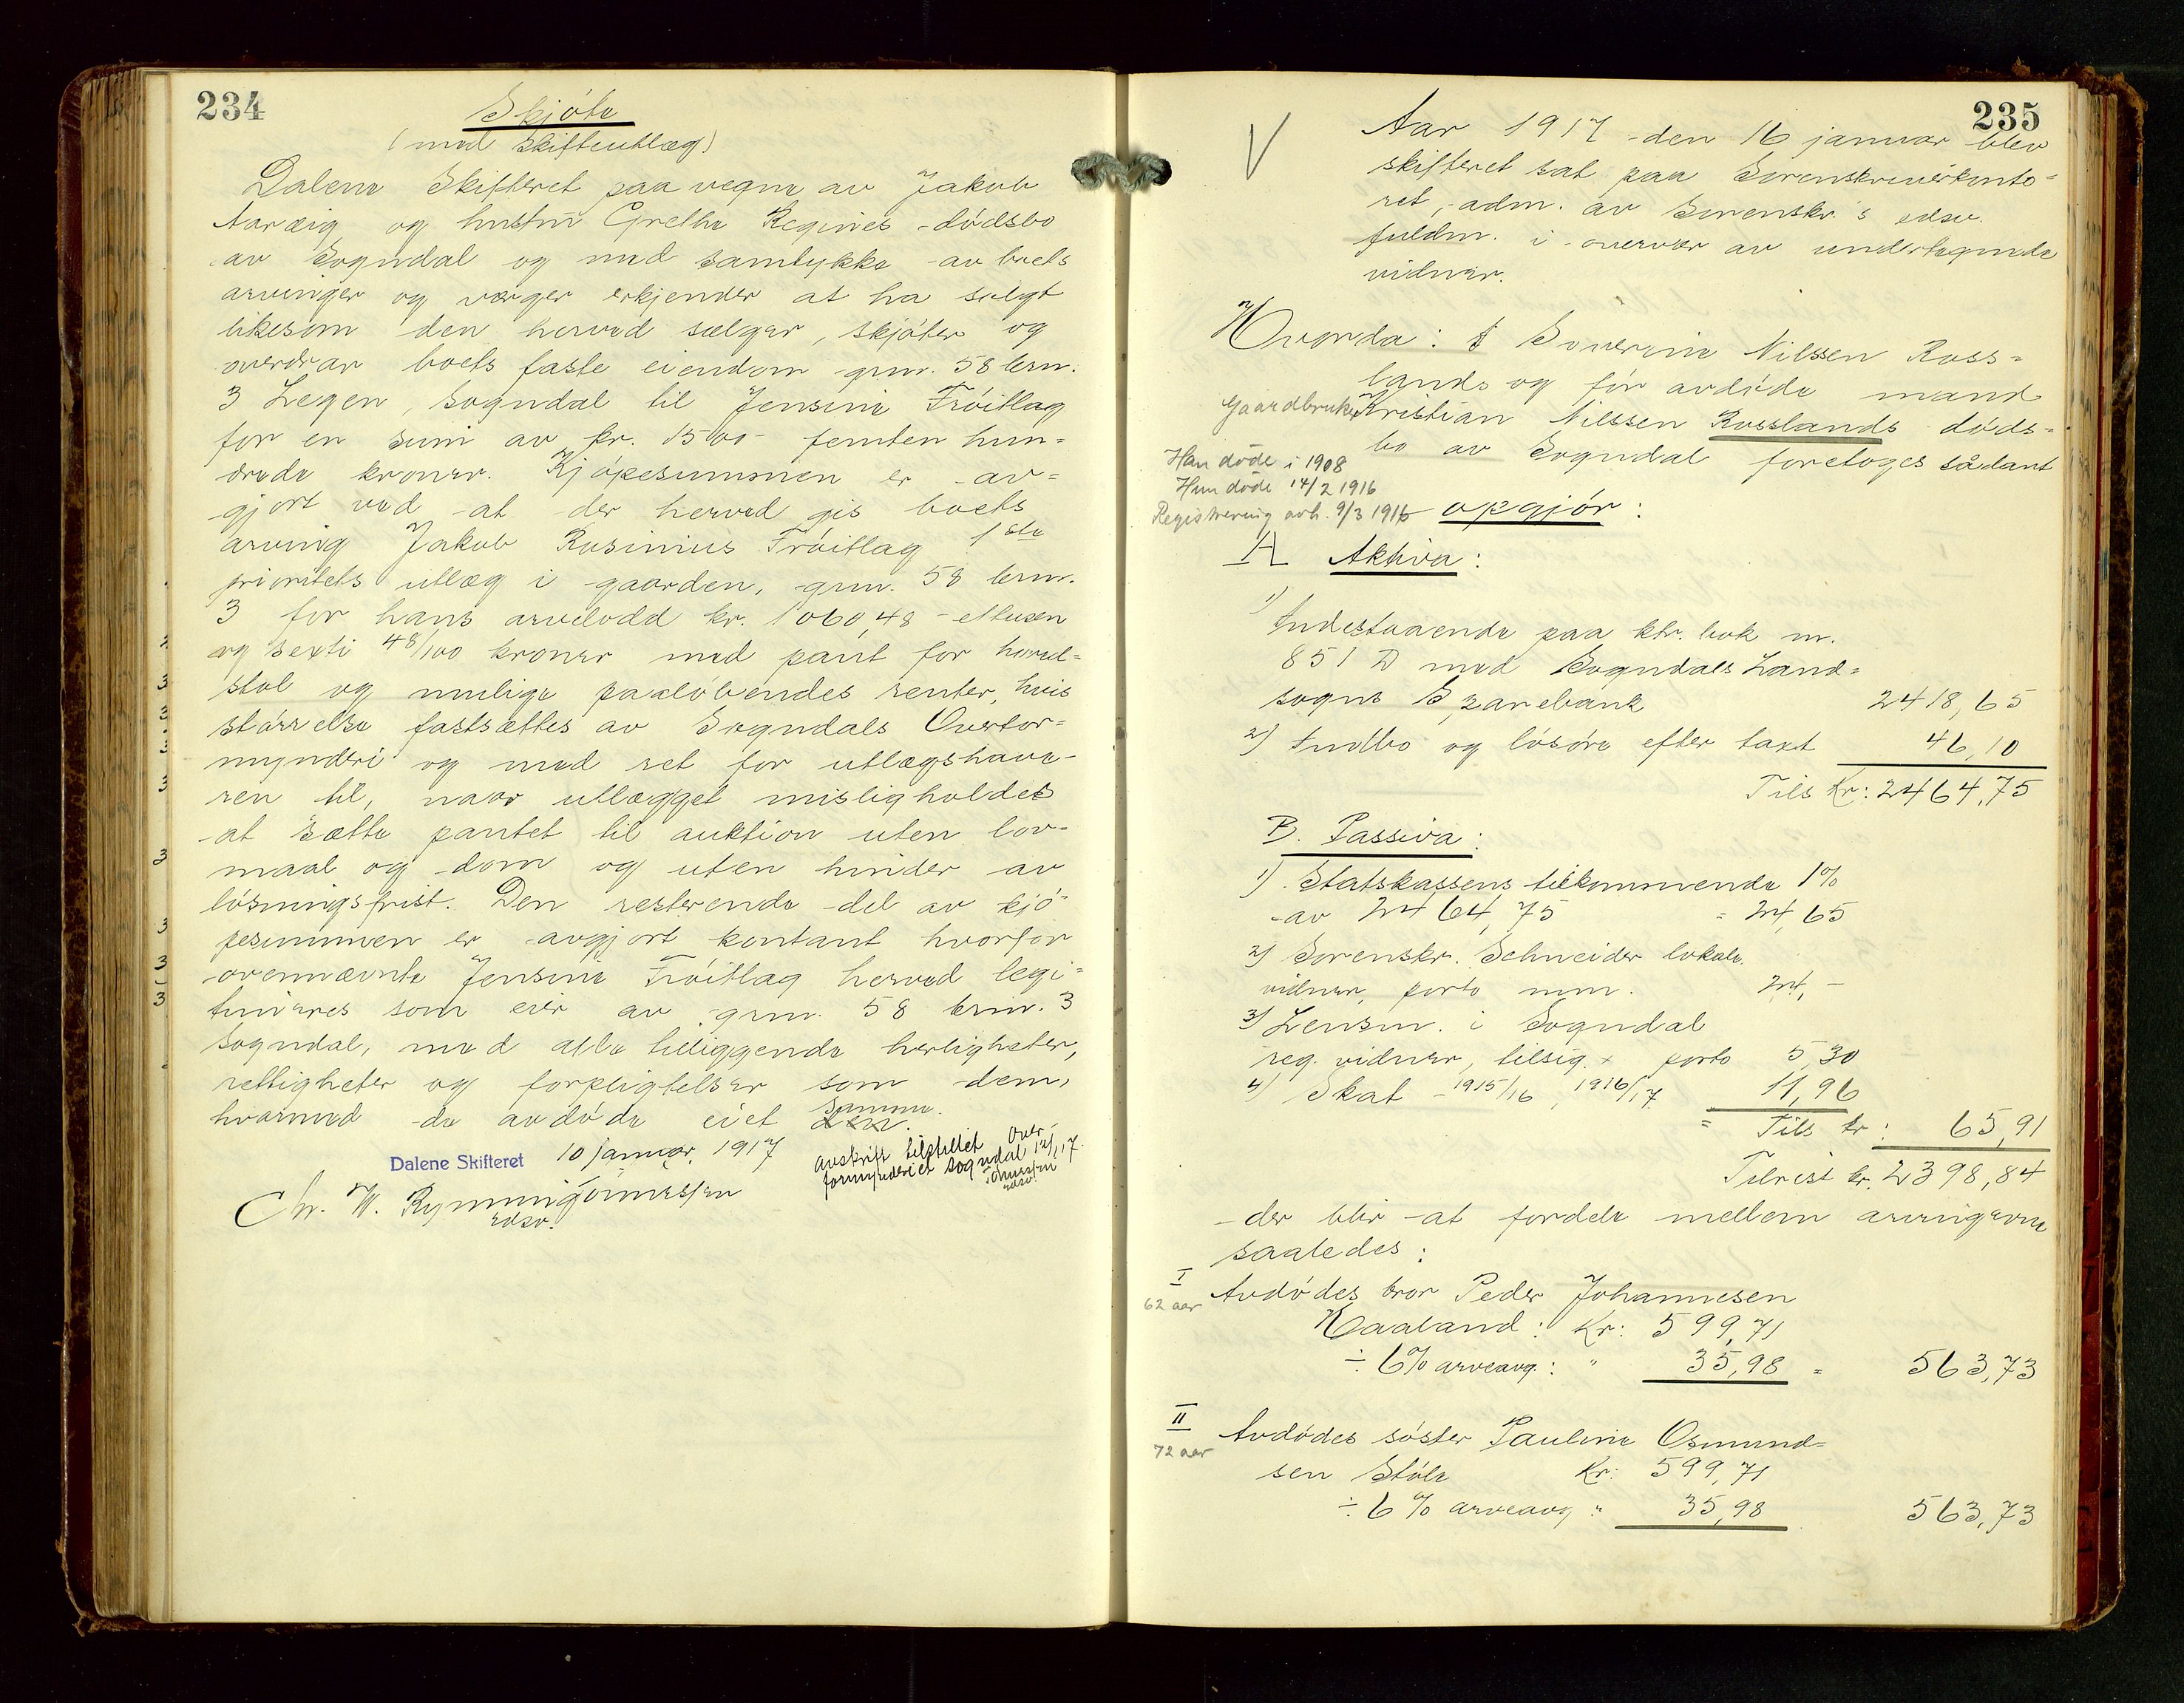 234
Skjöte
(med skifteutlæg)
Dalene Skifteret paa vegne av Jakob
Aaræig og hustru Grethe Regines dödsbo
av Sogndal og med samtykke av boets
arvinger og værger erkjender at ha solgt
likesom den herved sælger, skjöter og
overdrar boets faste eiendom grnr. 58 brnr.
3 Legen, Sogndal til Jensine Tröitlag
for en sum av kr. 1500 femten hun=
drede kroner. Kjöpesummen er av=
gjort ved at der herved gis boets
arving Jakob Rosinius Tröitlag 1ste
prioritets utlæg i gaarden, grnr. 58 brnr.
3 for hans arvelodd kr. 1060,48 - ettusen
og sexti 48/100 kroner med pant for hoved=
stol og mulige paaløbendes renter, hvis
störrelse fastsættes av Sogndals Overfor=
mynderi og med ret for utlægshave-
ren til, naar utlægget misligholdes
at sætte pantet til auktion uten lov=
maal og dom og uten hinder av
lösningsfrist. Den resterende del av kjö=
pesummen er avgjort kontant hvorfor
ovennævnte Jensine Tröitlag herved legi=
timeres som eier av grnr. 58 brnr. 3
Sogndal, med alle tilliggende herligheter,
rettigheter og forpligtelser som dem,
hvormed de avdöde eiet samme.
Dalene Skifteret 10 januar 1917
Avskrift tilstillet Over-
formynderiet Sogndal 12/1 17.
Tönnessen
edsv.
Chr. W. Rynning Tönnessen
edsv.
235
V
Aar 1917 den 16 januar blev
skifteret sat paa Sorenskriverkonto=
ret, adm. av Sorenskr.s edsv.
fuldm. i overvær av undertegnede
vidner.
Hvorda: I Severine Nilssen Ross=
lands og för avdöde mand
Gaardbruker Kristian Nilssen Rosslands döds=
bo av Sogndal foretoges sådant
Han döde i 1908
Hun döde 14/2 1916
Registrering avh. 9/3 1916
opgjör:
A Aktiva:
1) Indestaaende paa ktr. bok nr.
851 D med Sogndals Land=
sogns Sparebank 2418,65
2) Indbo og lösöre efter taxt 46,10
Tils Kr: 2464,75
B. Passiva:
1) Statskassens tilkommende 1%
av 2464,75 = 24,65
2) Sorenskr. Schneider lokale.
vidner, porto mm. 24, -
3) Lensm. i Sogndal
reg. vidner, tilsig. + porto 5,30
4) Skat 1915/16, 1916/17 11,96
= Tils kr: 65,91
Tilrest kr. 2398,84
der blir at fordele mellem arvingerne
saaledes:
I
62 aar
Avdödes bror Peder Johannesen
Haaland: Kr: 599,71
÷ 6% arveavg: " 35,98 = 563,73
II
72 aar
Avdödes söster Pauline Osmund=
sen Stöle Kr: 599,71
÷ 6% arveavg " 35,98 563,73